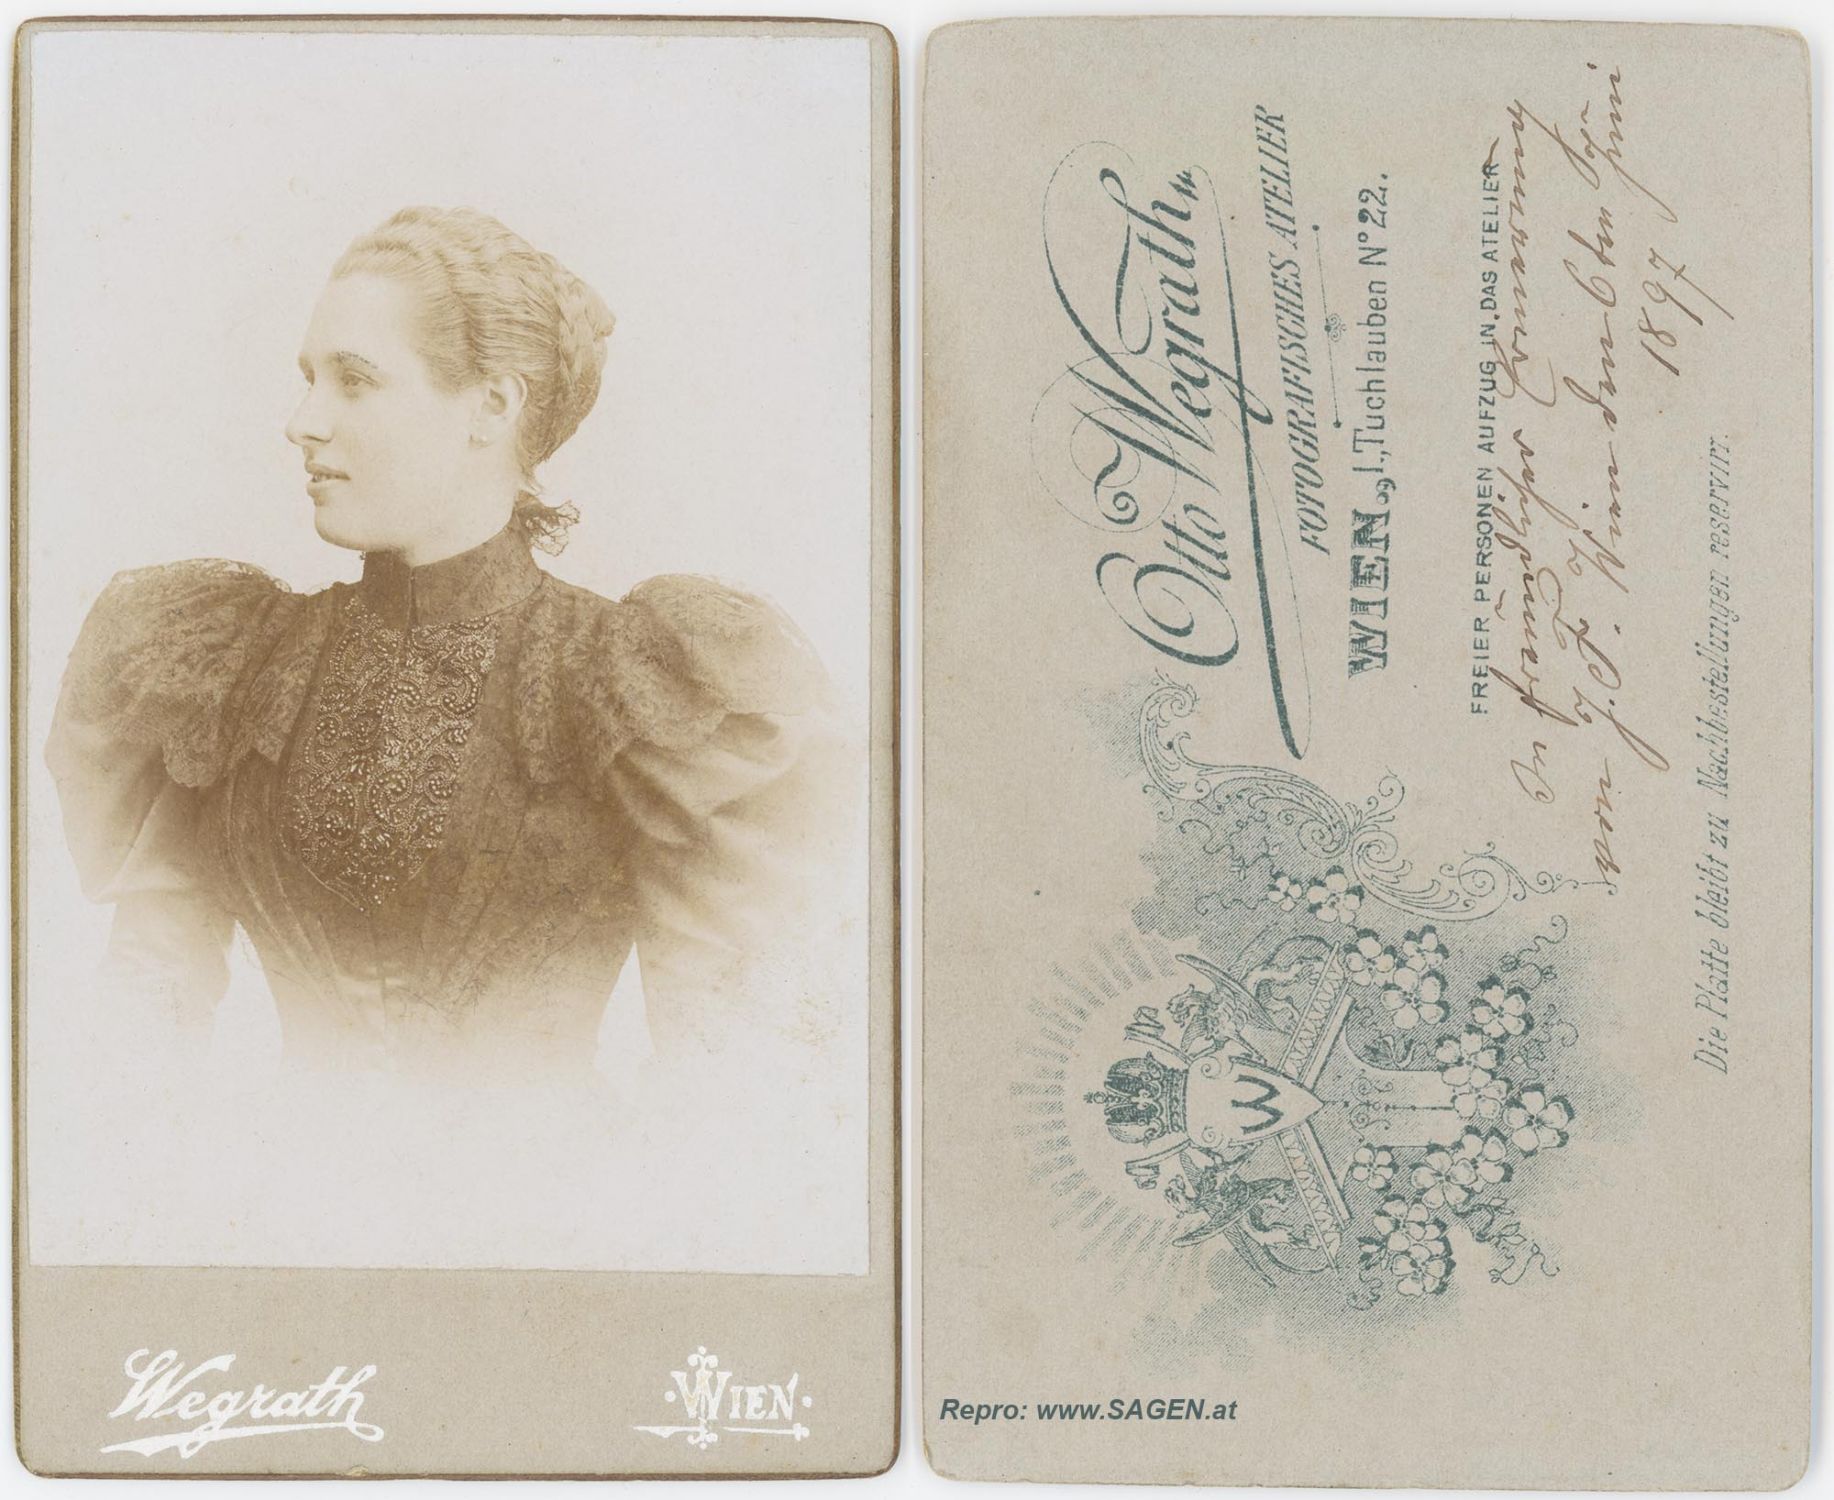 Wegrath
WIEN
Otto Wegrath
FOTOGRAFISCHES ATELIER
WIEN, I., Tuchlauben Nº 22.
FREIER PERSONEN AUFZUG IN DAS ATELIER
zur freundlichen Erinnerung
von
Wien den 6ten Juni
1897
Die Platte bleibt zu Nachbestellungen reservirt.
W
Repro: www.SAGEN.at